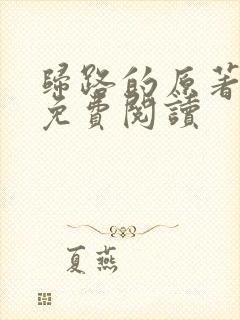 歸路的原著
免費閱讀
夏燕